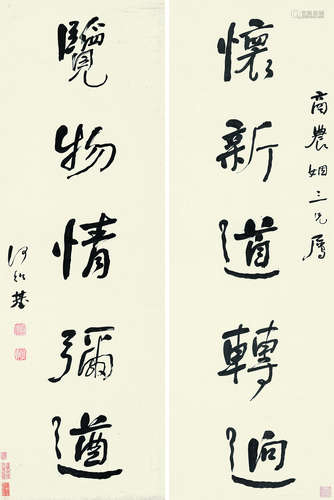 商農姻三兄屬
懷新道轉逈
覽物情彌遒
何紹基